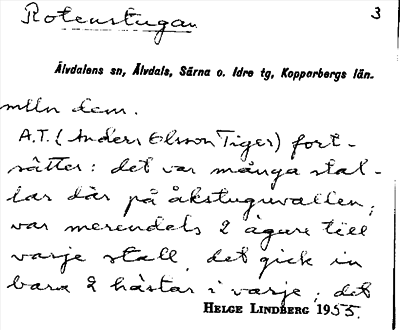 Rotenstugan 3
Älvdalens sn, Älvdals, Särna o. Idre tg, Kopparbergs län.
mlln dem.
A.T. (Anders Olsson Tiger) fort-
sätter: det var många stal-
lar där på åkstuguvallen;
var merendels 2 ägare till
varje stall, det gick in
bara 2 hästar i varje; det
HELGE LINDBERG 1955.